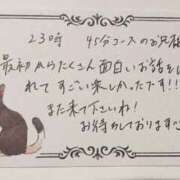 23時 45分コースのお兄様
最初からたくさん面白いお話をしてく
れて すごい楽しかったです!!
また来て下さいね!
お待ちしております♡